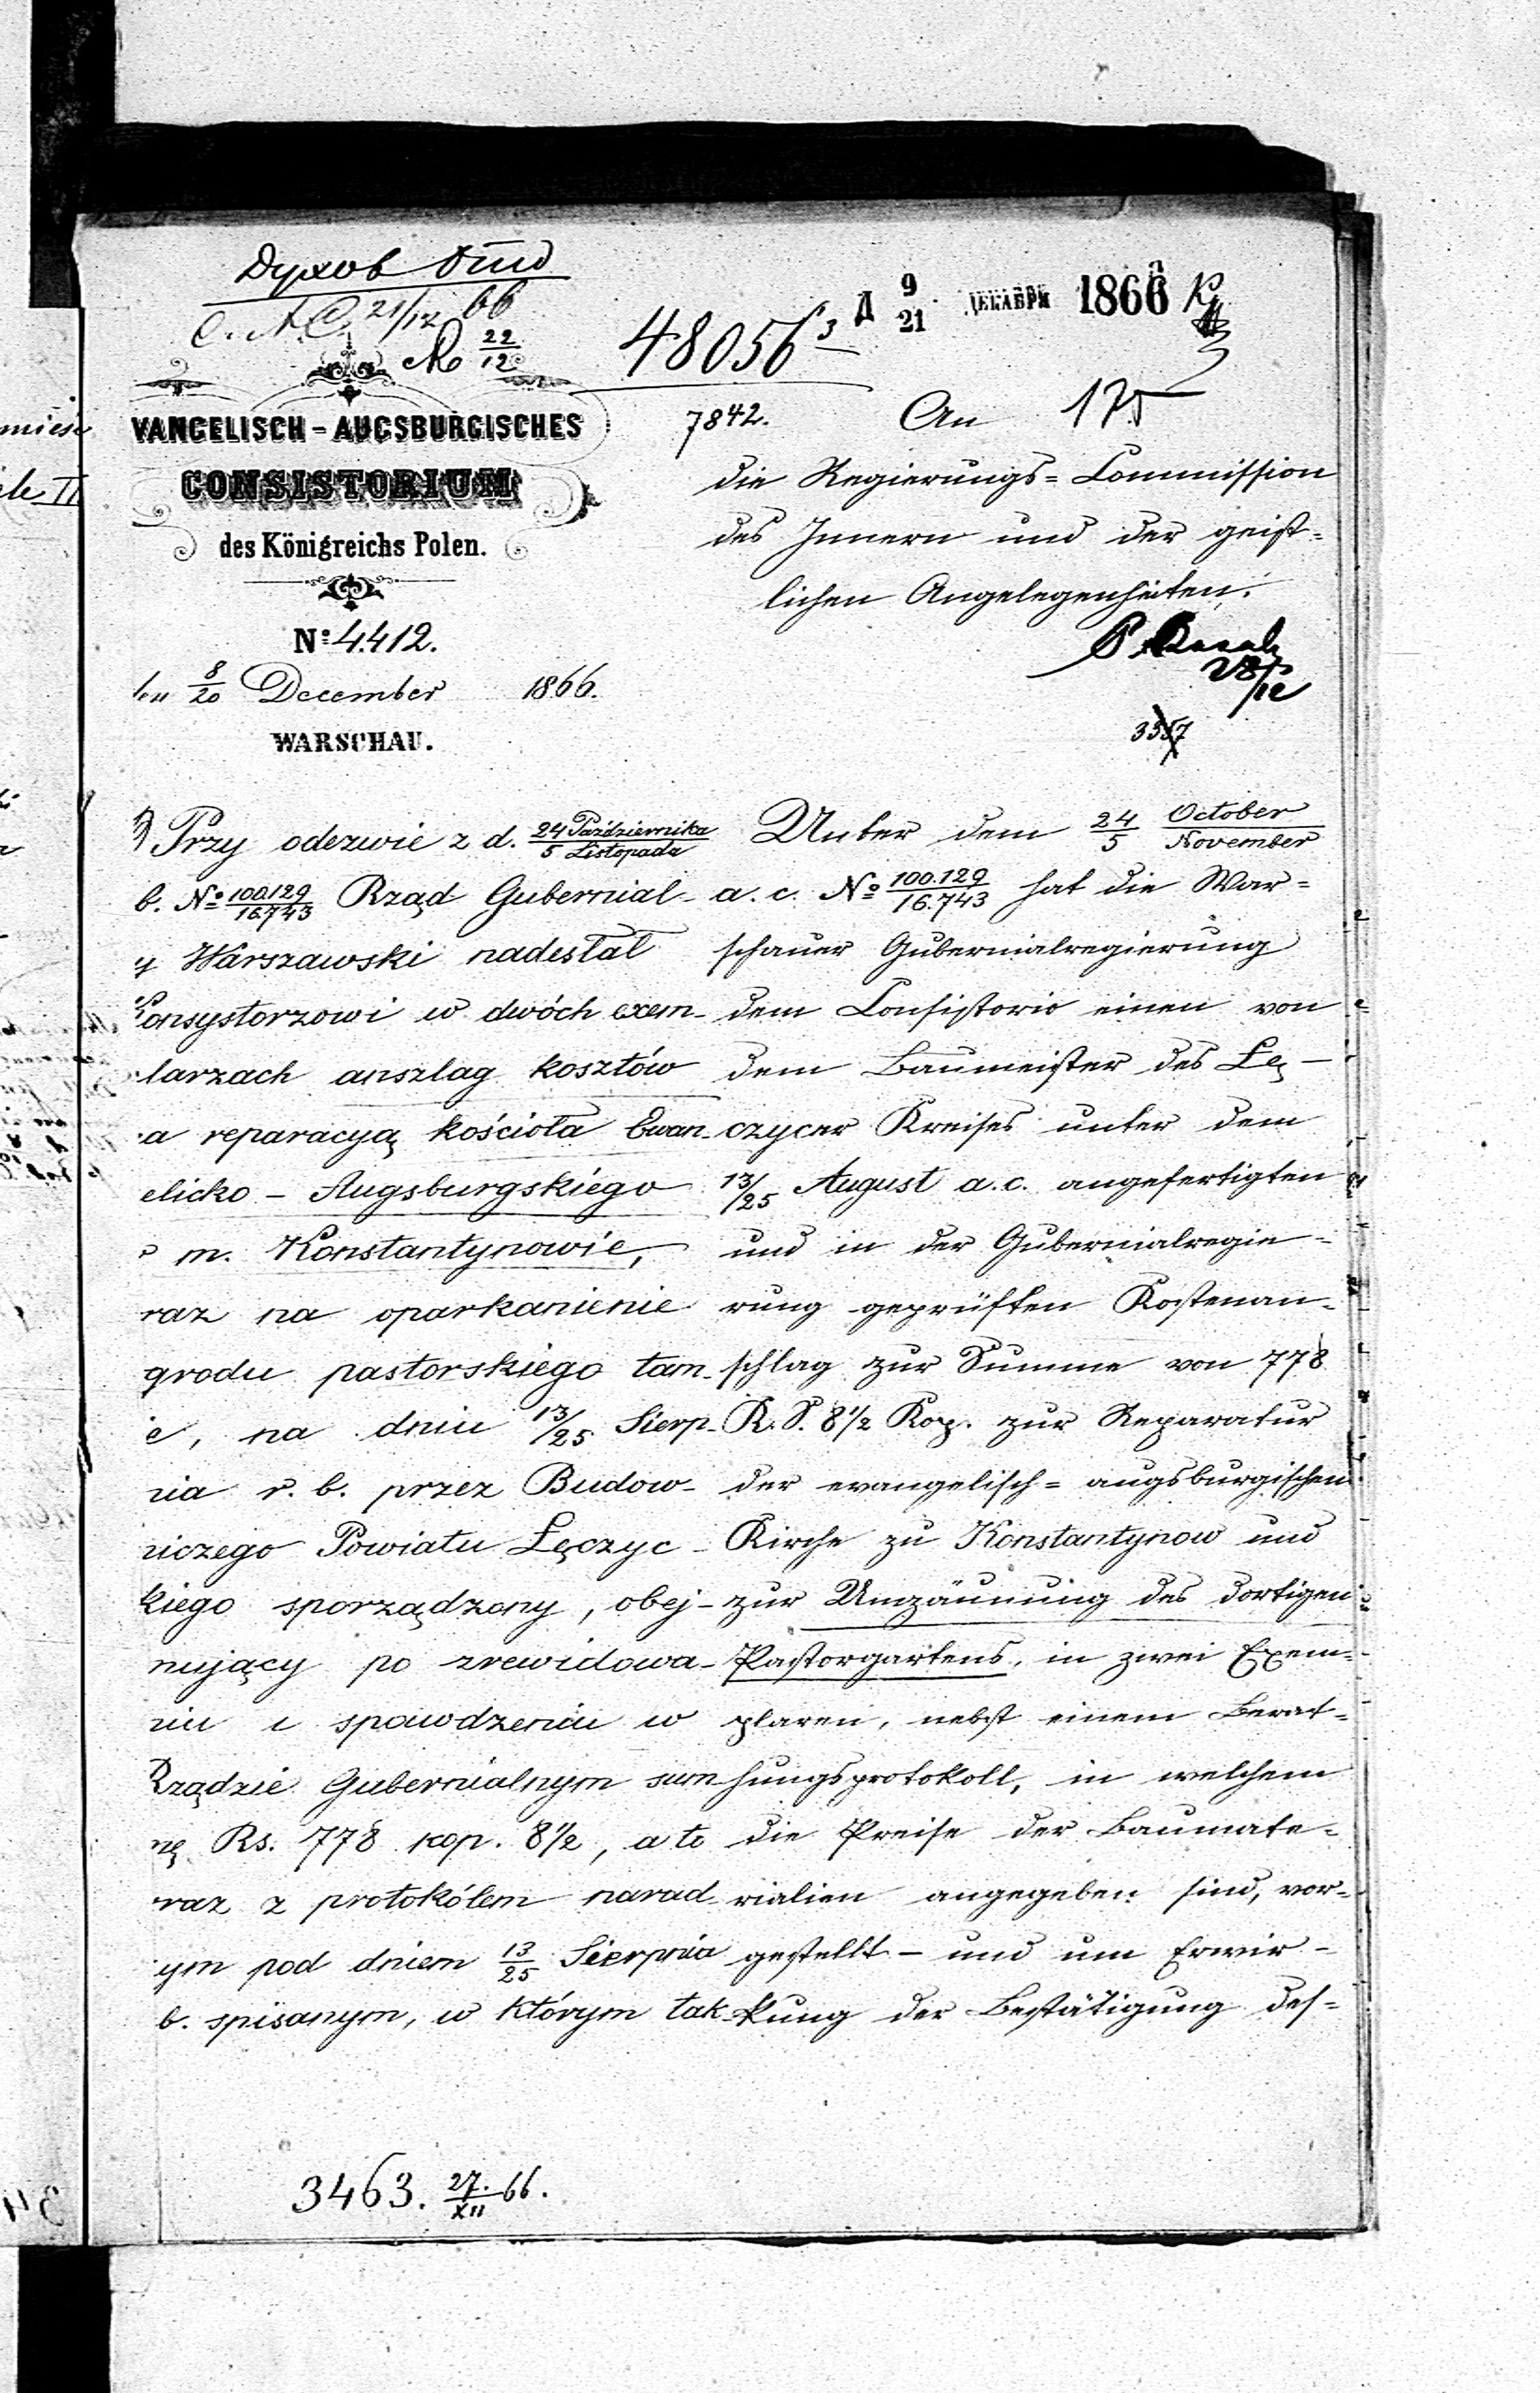 Духов Отд
21/12 66
22/12
48056
Д 9/21 ДЕКАБРЯ 1866
VANGELISCH-AUGSBURGISCHES
CONSISTORIUM
des Königreichs Polen.
No: 4412.
8/20 December 1866.
WARSCHAU.
7842.
An 175
die Regierungs=Commission
des Innern und der geist=
lichen Angelegenheiten.
28/12
3357
Przy odezwie z d. 24 Października/5 Listopada
b. No 100.129/16.743 Rząd Gubernial-
y Warszawski nadesłał
Konsystorzowi w dwóch exem-
larzach anszlag kosztów
a reparacyą kościoła Ewan-
elicko-Augsburgskiégo
m. Konstantynowie,
raz na oparkanienie
grodu pastorskiego tam-
e, na dniu 13/25 Sierp-
nia r. b. przez Budow-
niczego Powiatu Łęczyc-
kiego sporządzony, obej-
mujący po zrewidowa-
niu i spawdzeniu w
Rządzie Gubernialnym sum-
mę Rs. 778 kop. 8½, a to
raz z protokólem narad-
ym pod dniem 13/25 Sierpnia
b. spisanym, w którym tak-
Unter dem 24/5 October/November
a. c. No 100.129/16.743 hat die War=
schauer Gubernialregierung
dem Consistorio einen von
dem Baumeister des Łę-
czycer Kreises unter dem
13/25 August a. c. angefertigten
und in der Gubernialregie-
rung geprüften Kostenan-
schlag zur Summe von 778
R. S. 8½ Kop. zur Reparatur
der evangelisch=augsburgischen
Kirche zu Konstantynow und
zur Umzäunung des dortigen
Pastorgartens, in zwei Exem-
plaren, nebst einem Berat=
hungsprotokoll, in welchem
die Preise der Baumate-
rialien angegeben sind, vor-
gestellt - und um Erwir-
kung der Bestätigung des=
3463. 27./XII 66.